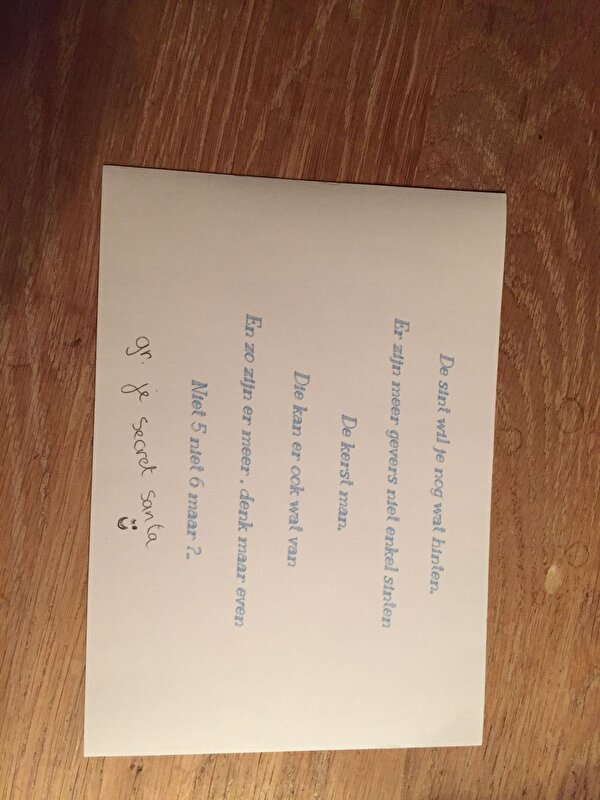 De sint wil je nog wat hinten.
Er zijn meer gevers niet enkel sinten
De kerst man.
Die kan er ook wat van
En zo zijn er meer . denk maar even
Niet 5 niet 6 maar ?..
gr. je secret santa